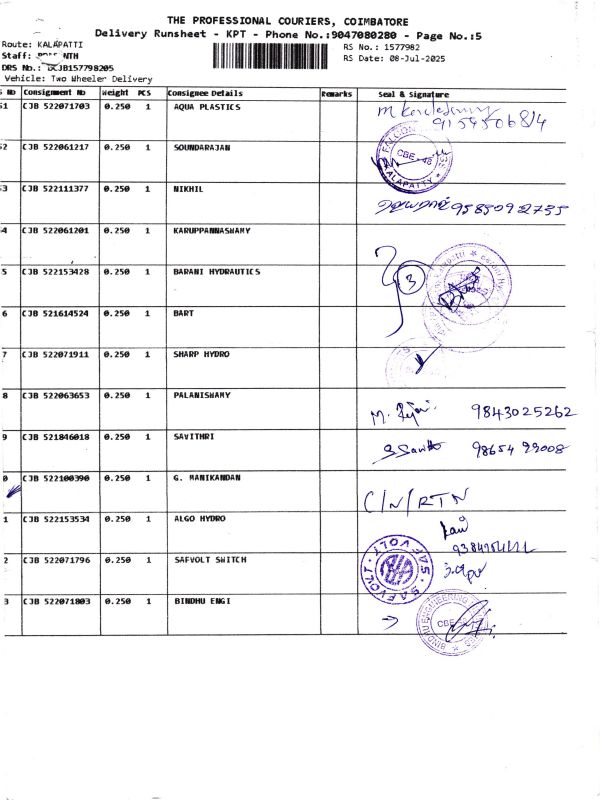 THE PROFESSIONAL COURIERS, COIMBATORE
Delivery Runsheet - KPT - Phone No.:9047080280 - Page No.:5
Route: KALAPATTI
RS No.: 1577982
Staff:
RS Date: 08-Jul-2025
DRS No.: DCJB157798205
Vehicle: Two Wheeler Delivery
S No Consignment No Weight PCS Consignee Details Remarks Seal & Signature
51 CJB 522071703 0.250 1 AQUA PLASTICS
52 CJB 522061217 0.250 1 SOUNDARAJAN
FALCON CBE - 48 KALAPATTY
53 CJB 522111377 0.250 1 NIKHIL
9585092735
54 CJB 522061201 0.250 1 KARUPPANNASWAMY
5 CJB 522153428 0.250 1 BARANI HYDRAUTICS
3
6 CJB 521614524 0.250 1 BART
7 CJB 522071911 0.250 1 SHARP HYDRO
8 CJB 522063653 0.250 1 PALANISWAMY
M. 9843025262
9 CJB 521846018 0.250 1 SAVITHRI
98654 99008
0 CJB 522100390 0.250 1 G. MANIKANDAN
C/N/RTN
1 CJB 522153534 0.250 1 ALGO HYDRO
2 CJB 522071796 0.250 1 SAFVOLT SWITCH
SAFVOLT SAFVOLT
3 CJB 522071803 0.250 1 BINDHU ENGI
BINDHU ENGINEERING CBE